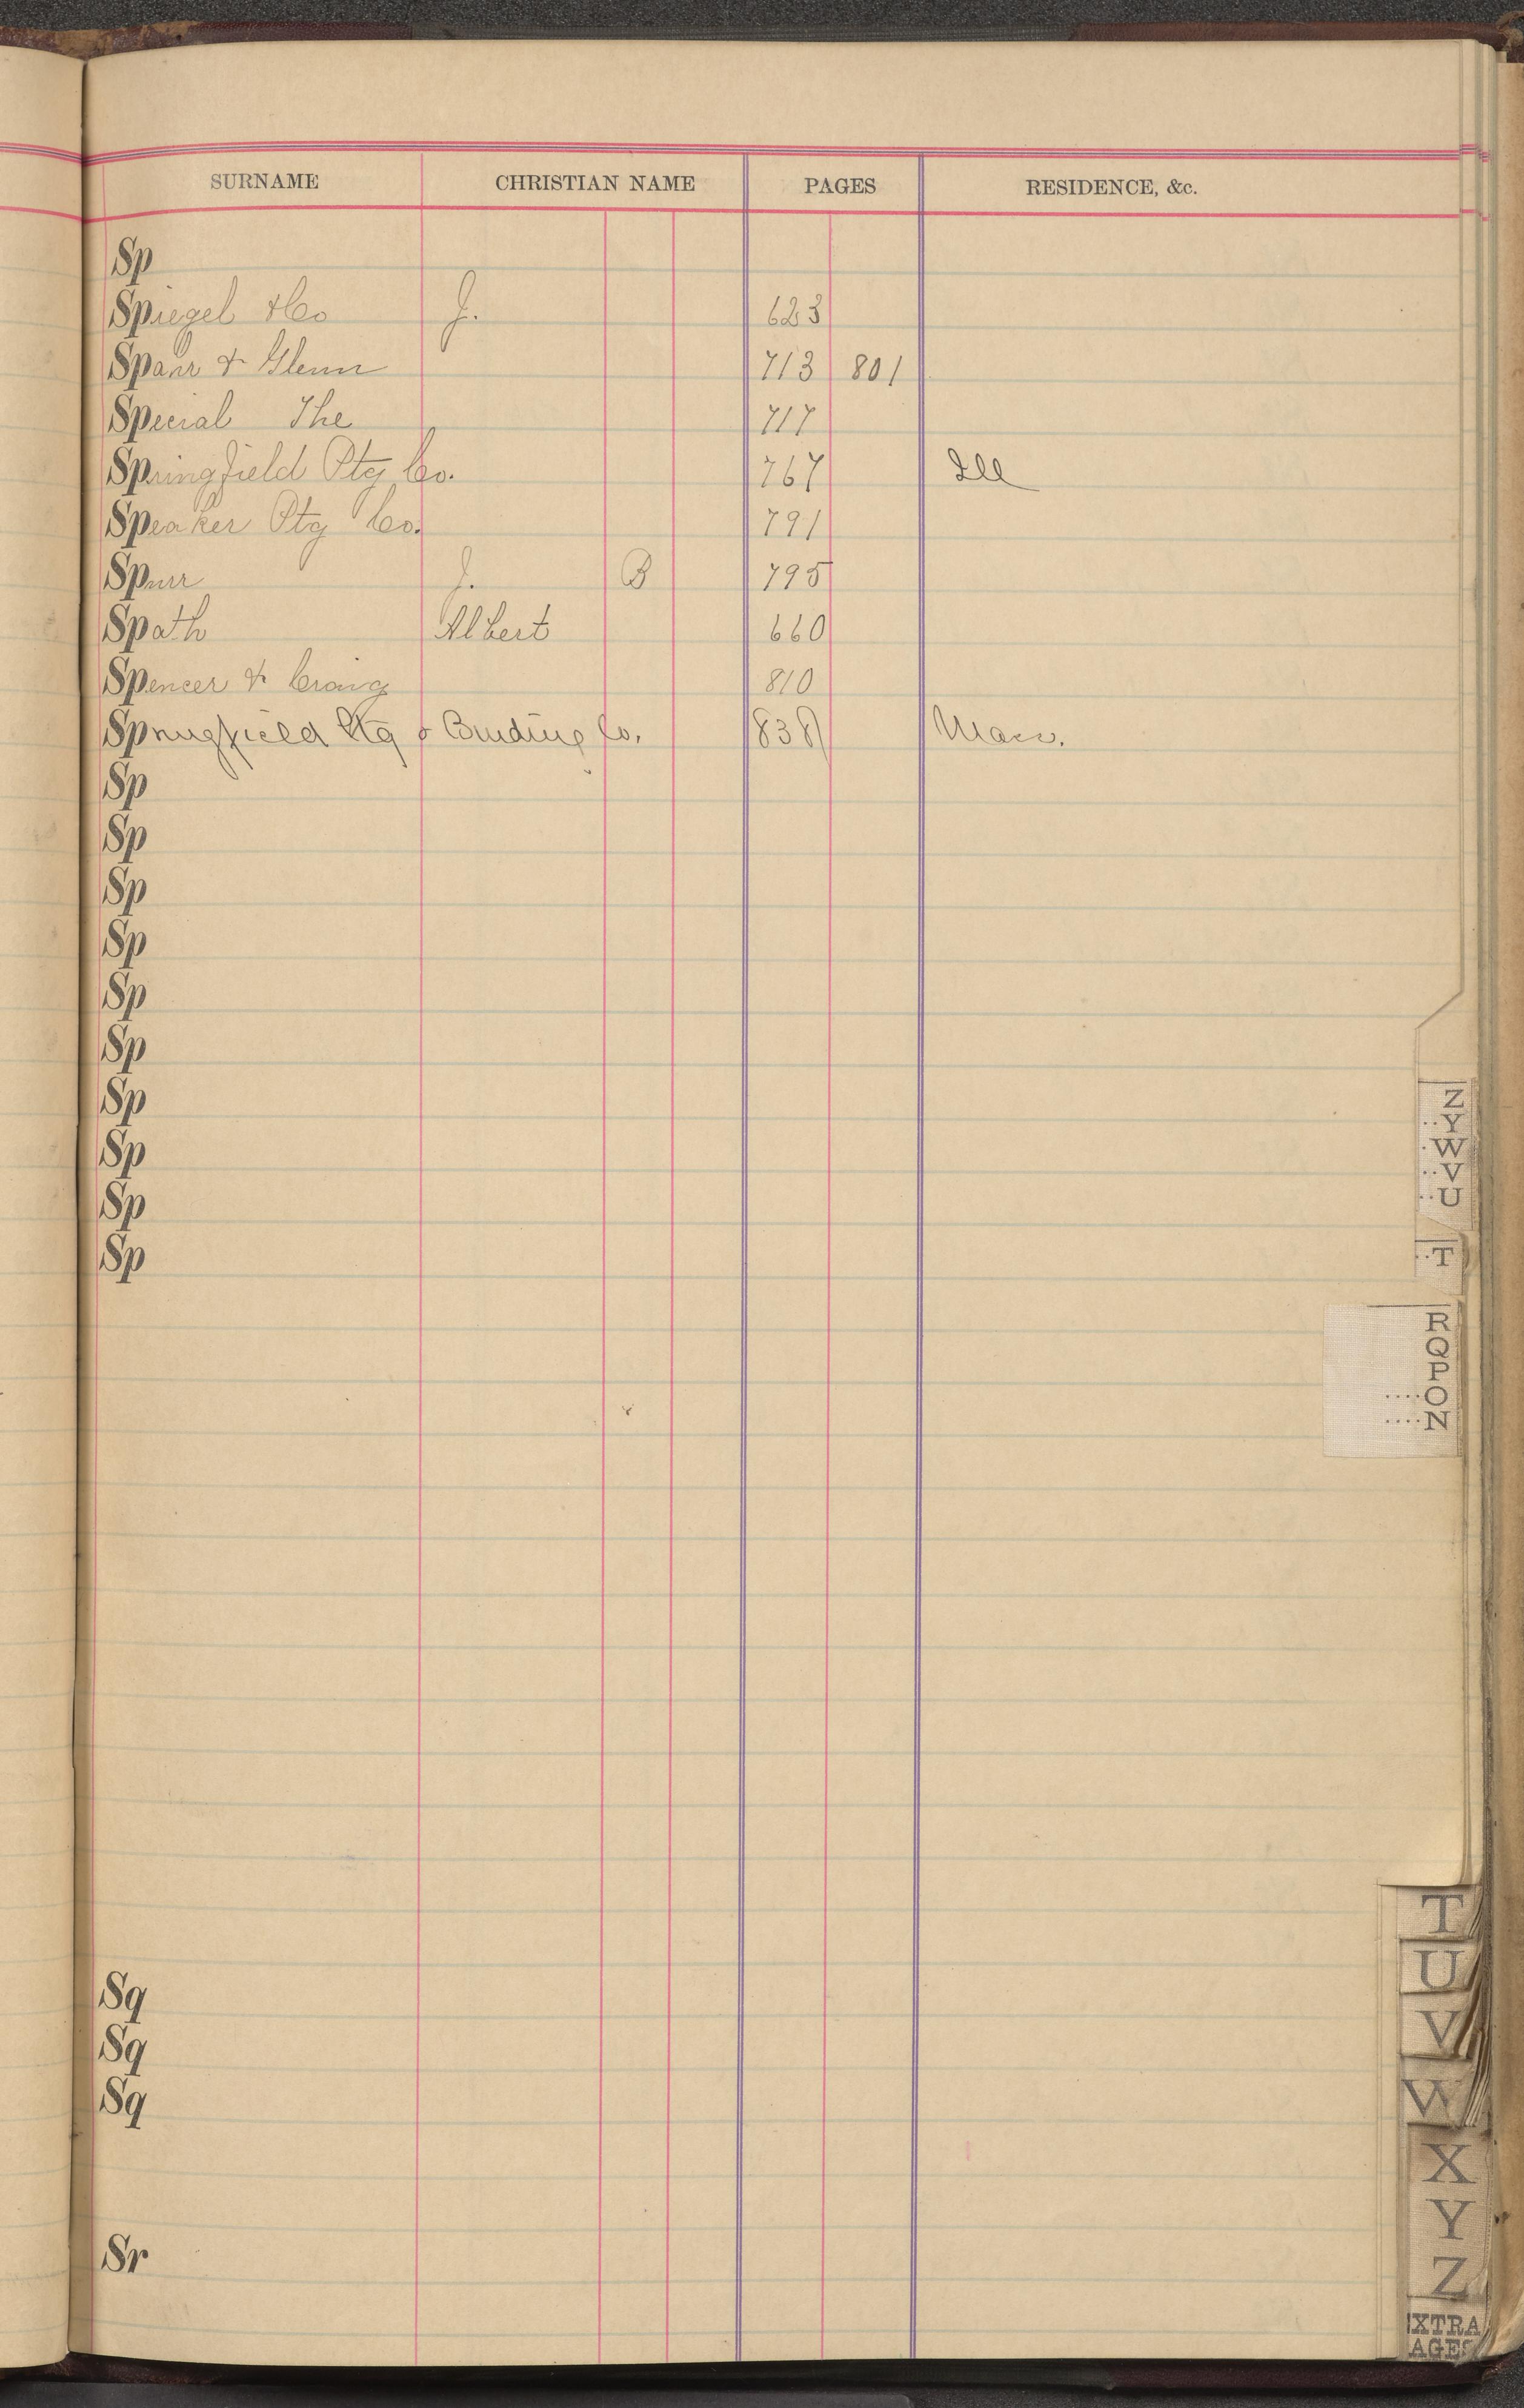 SURNAME CHRISTIAN NAME PAGES RESIDENCE, &c.
Sp
Spiegel & Co J. 623
Sparr & Glenn 713 801
Special The 717
Springfield Ptg Co. 767 Ill
Speaker Ptg Co. 791
Spurr J. B 795
Spath Albert 660
Spencer & Craig 810
Springfield Ptg & Binding Co. 838 Mass.
Sp
Sp
Sp
Sp
Sp
Sp
Sp
Sp
Sp
Sp
Sq
Sq
Sq
Sr
Z
..Y
.W
..V
..U
..T
R
Q
P
....O
....N
T
U
V
W
X
Y
Z
EXTRA
AGES